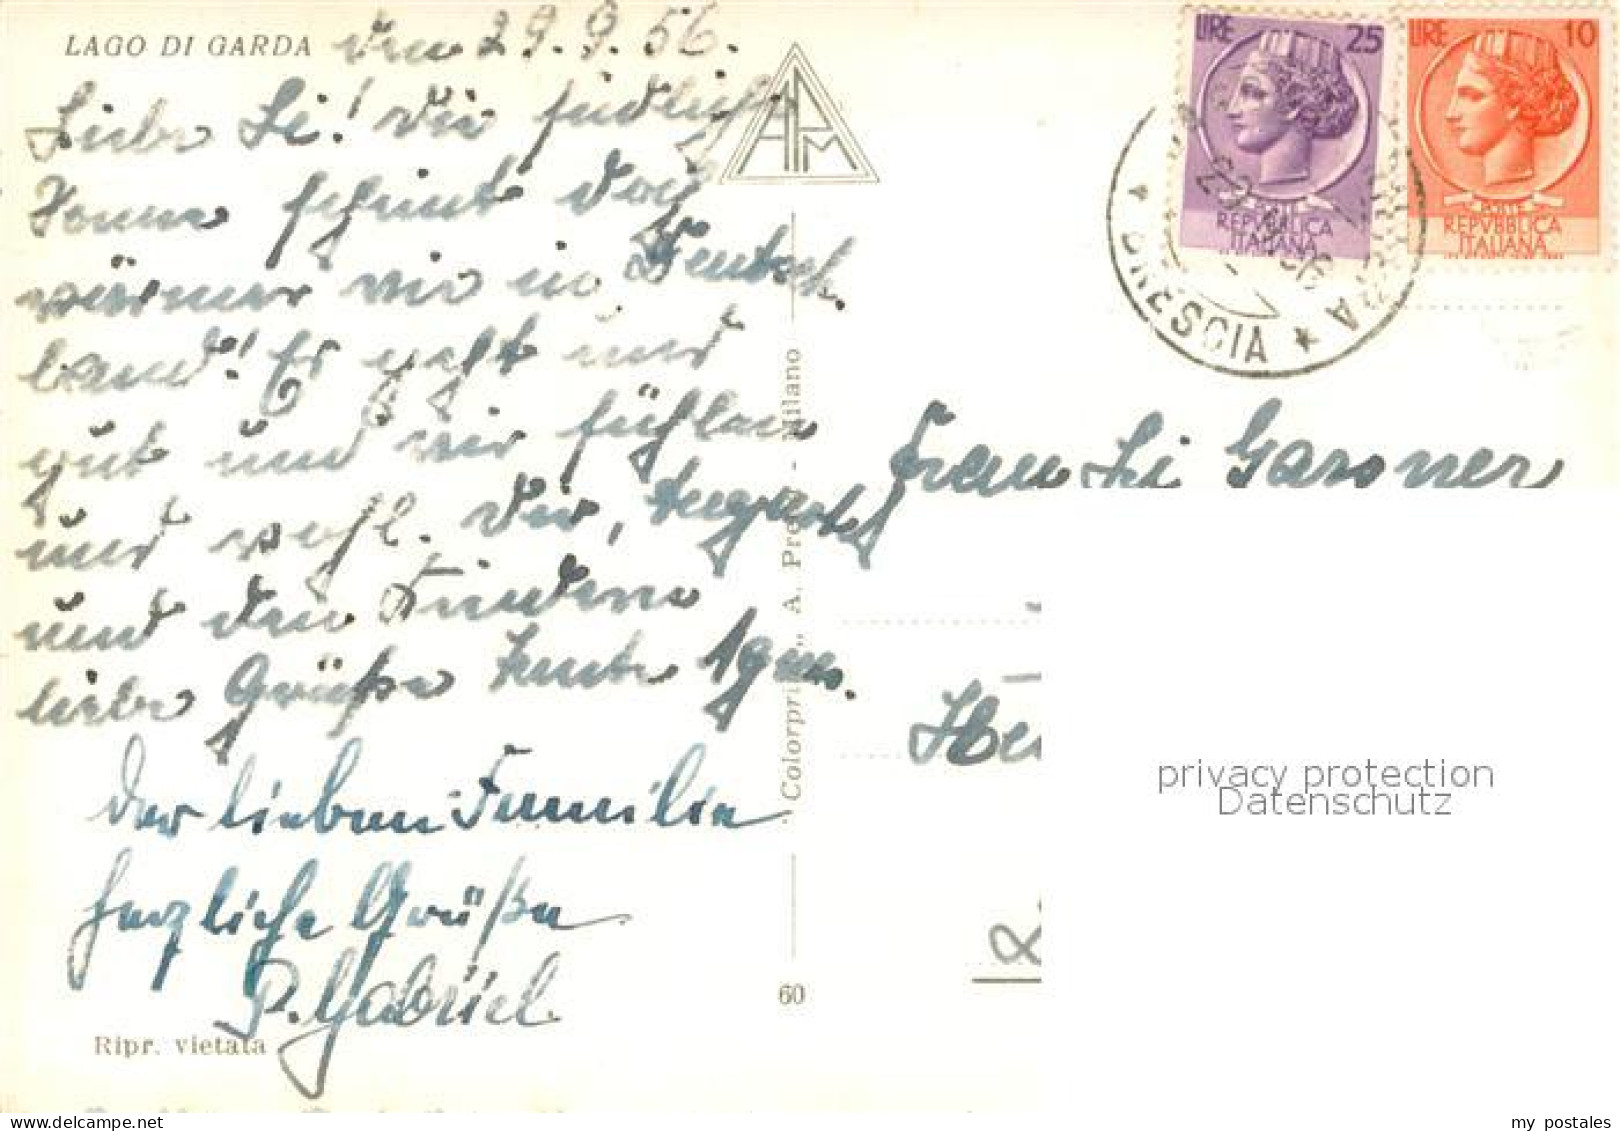 LAGO DI GARDA den 29.9.56.
Liebe Li! Die südliche
Sonne scheint doch
wärmer wie in Deutsch-
land! Es geht uns
gut und wir fühlen
uns wohl. Dir,
und den Kindern
liebe Grüße
Der lieben Familie
herzliche Grüße
P. Gabriel
Ripr. vietata
Milano
60
LIRE 25
POSTE
REPVBBLICA
ITALIANA
LIRE 10
POSTE
REPVBBLICA
ITALIANA
BRESCIA
Frau Li Gassner
privacy protection
Datenschutz
my postales